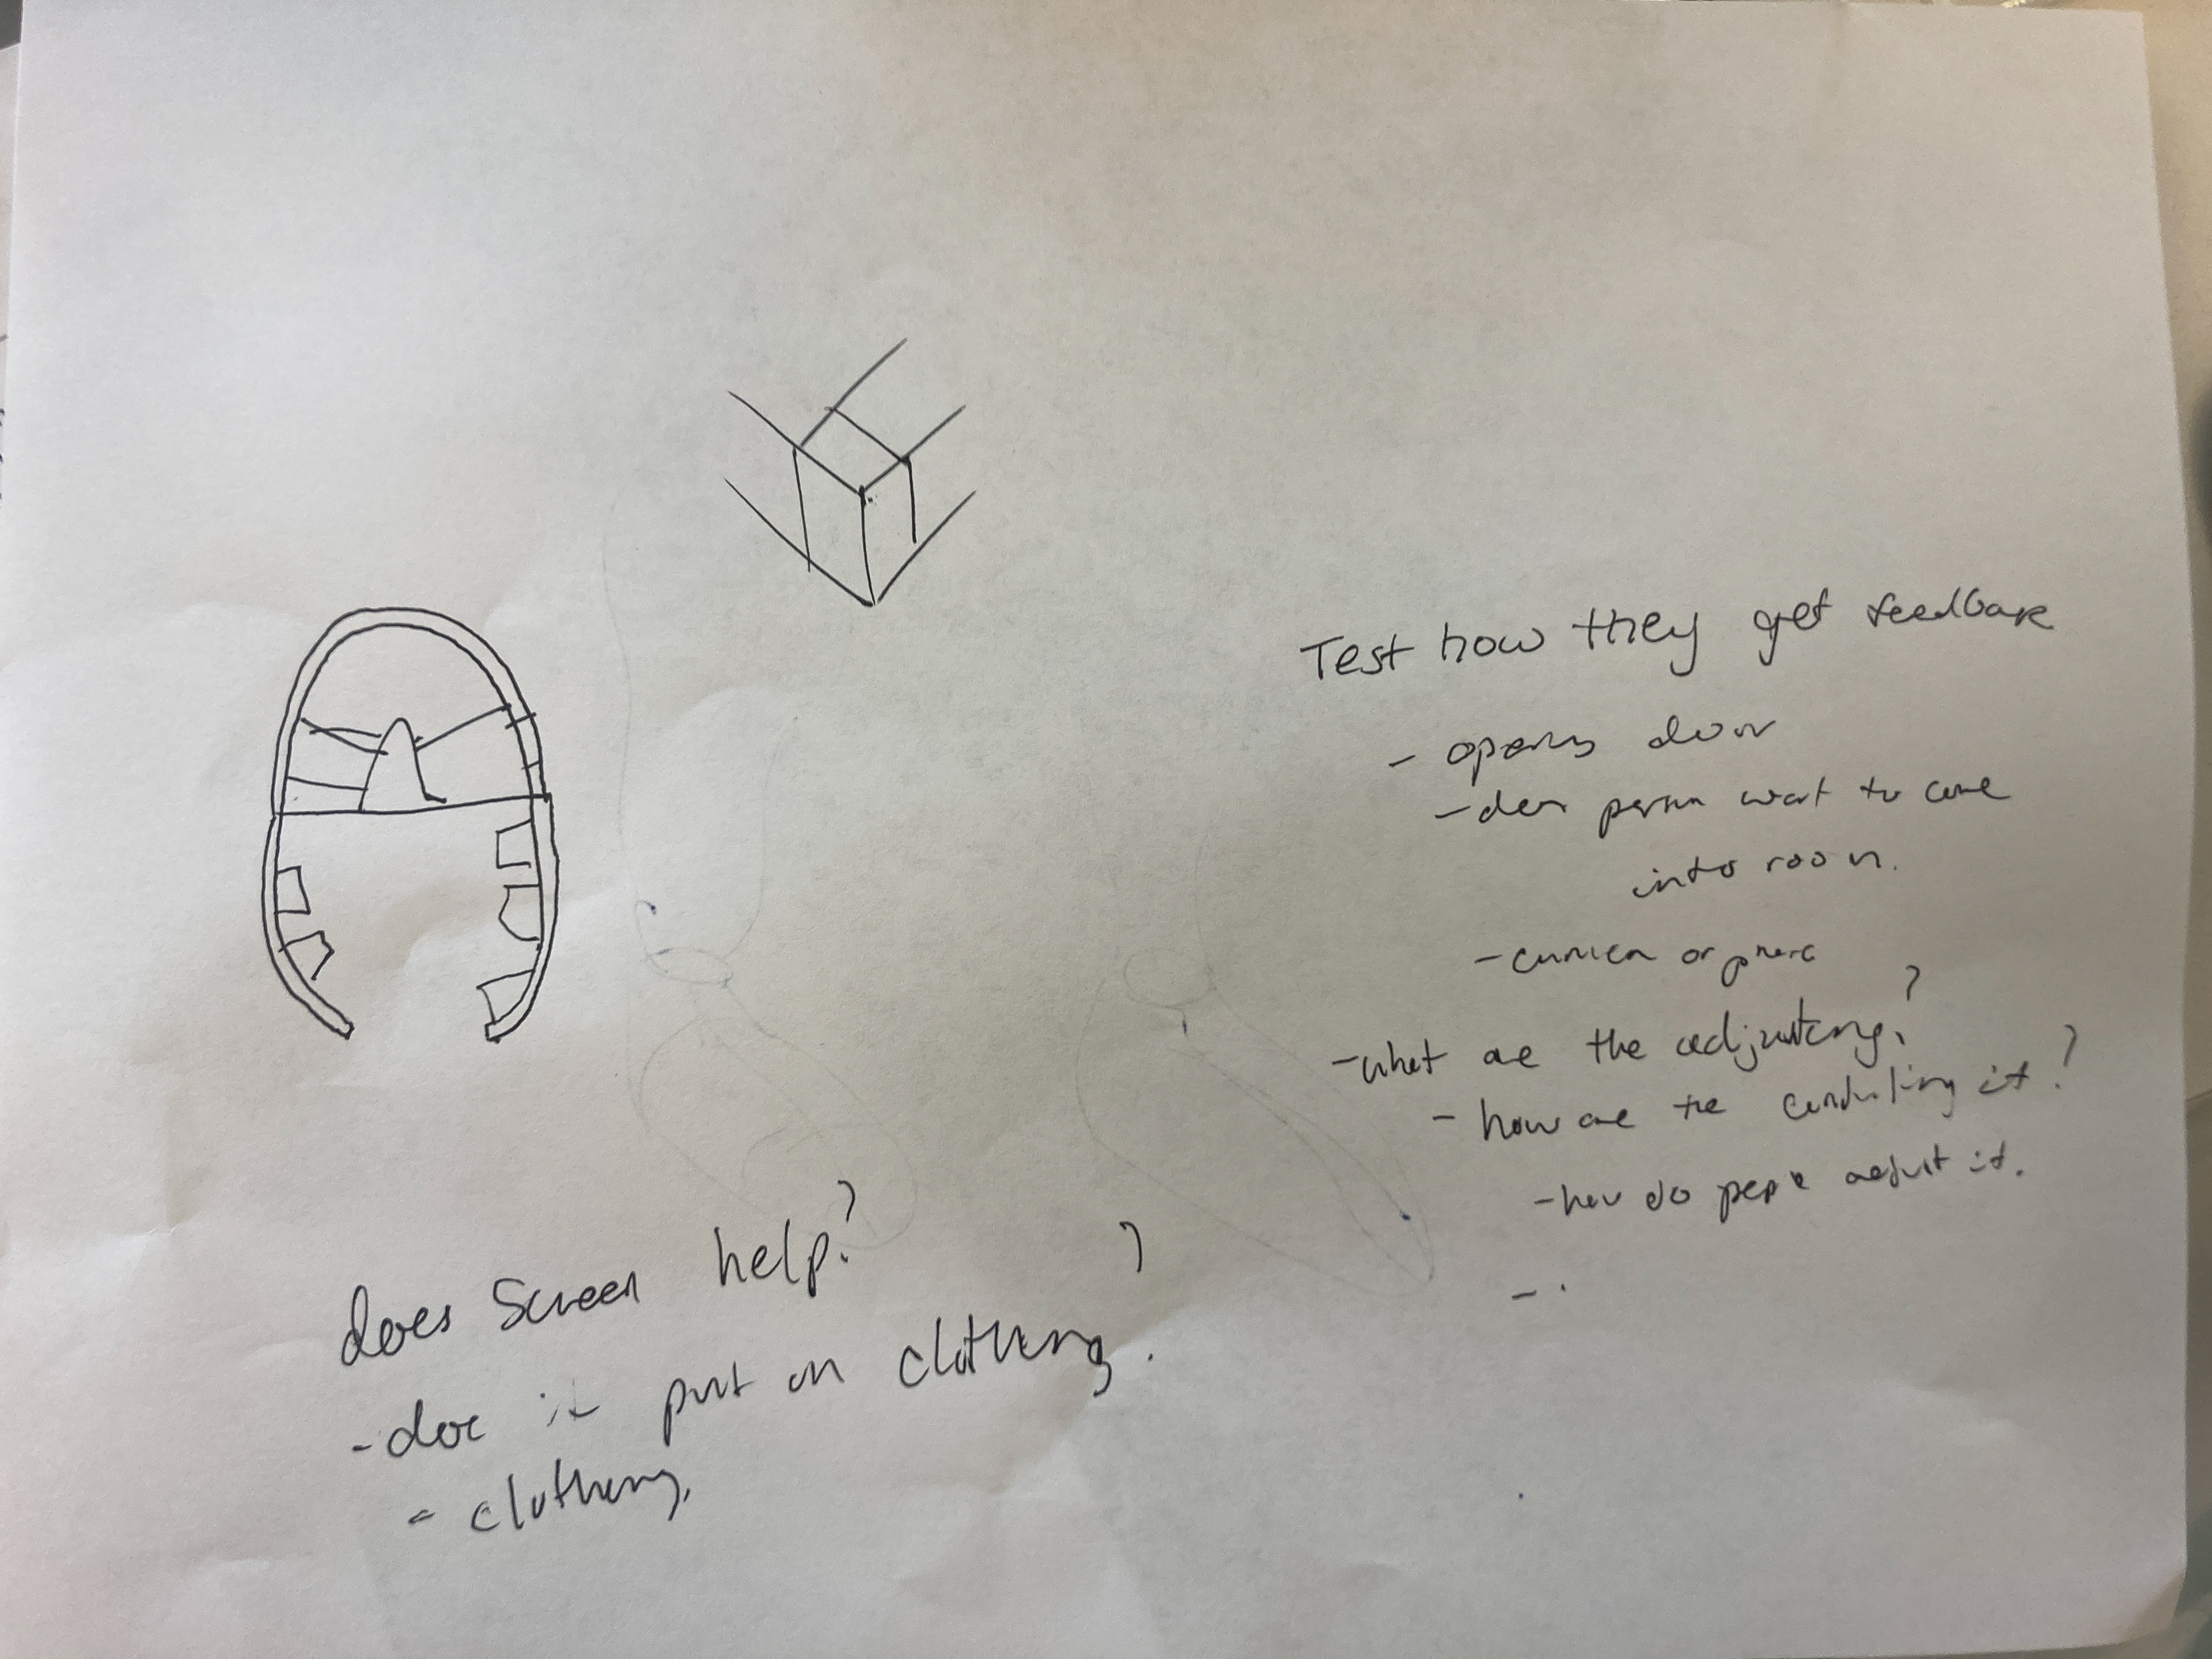 Test how they get feedback
- opens door
- does person want to come
into room.
- or
- what are the adjusting?
- how are the controlling it?
- how do people adjust it.
- .
does Screen help?
- doe it put on clothing?
- clothing.